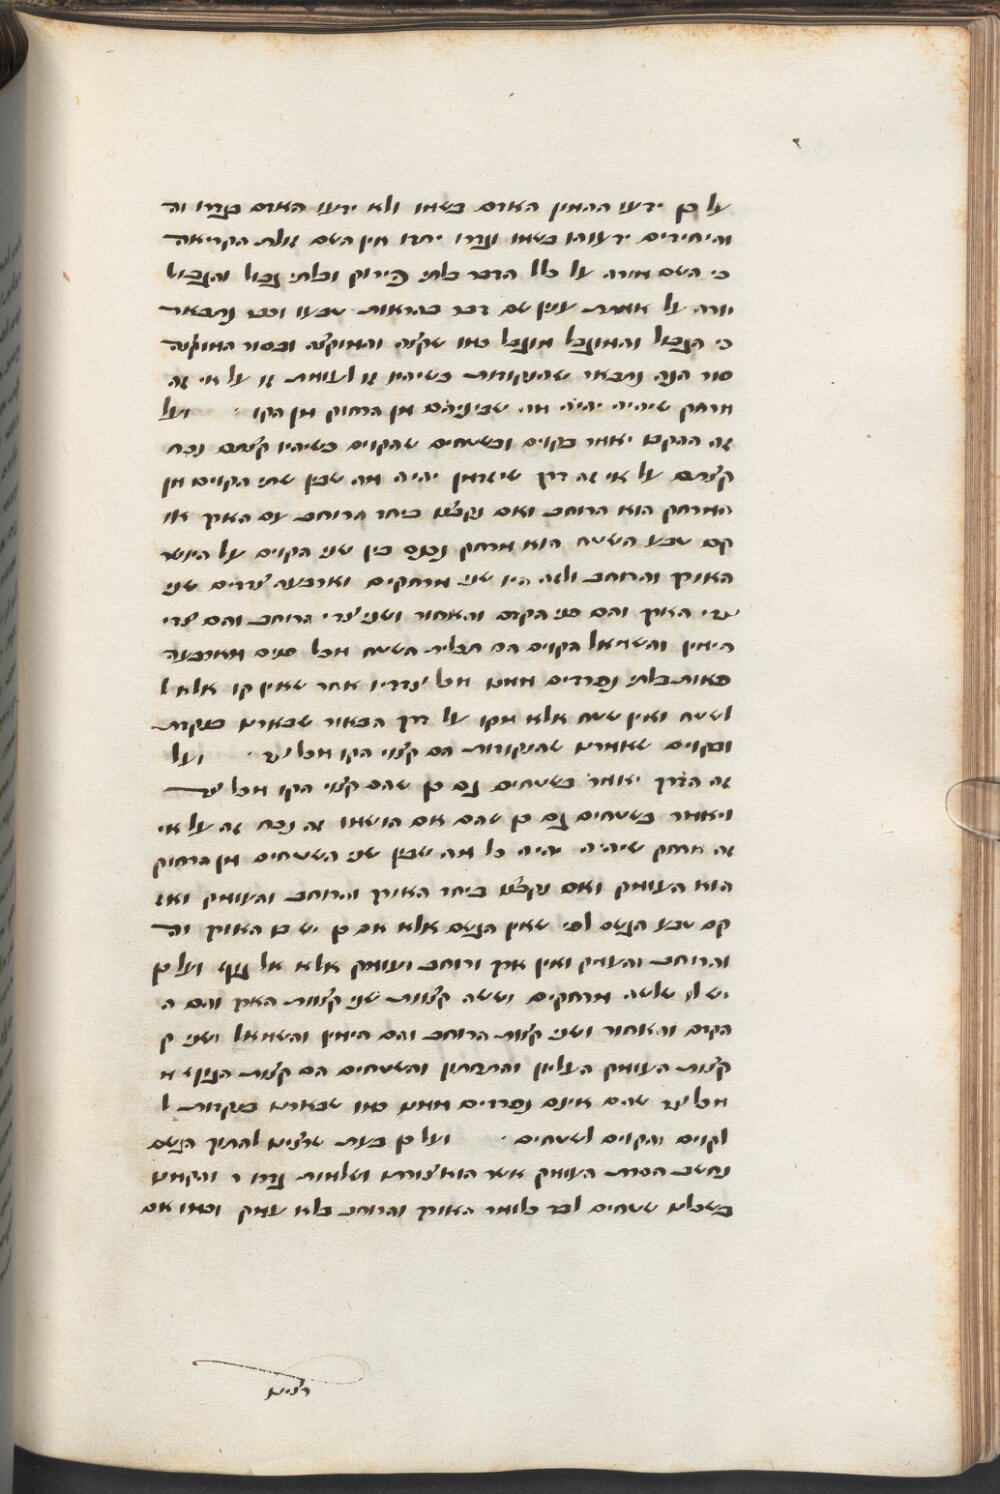 על כן ידעו ההמון האדם בשמו ולא ידעו האדם בגדרו וה
והיחידים ידעוהו בשמו וגדרו יחדו ואין השם זולת הקריאה
כי השם מורה על כלל הדבר בלתי פירוק ובלתי גבול והגבול
יורה על אמתת ענין שם דבר בהראות טבעו וכבר נתבאר
כי הגבול והמוגבל מוגבל כמו שקצה והמוקצה ובסור המוקצה
סור הנה נתבאר שהנקודות כשיהיו זו לעומת זו על אי זה
מרחק שיהיה יהיה מה שביניהם מן הרחוק מן הקו ועל
זה ההקש יאמר בקוים ובשטחים שהקוים כשיהיו קצתם נכח
קצתם על אי זה דרך שיזדמן יהיה מה שבין שתי הקוים מן
המרחק הוא הרוחב ואם נקבצו ביחד הרוחב עם האורך אז
קם טבע השטח הוא מרחק נכנס בין שני הקוים על היושר
האורך והרוחב ולזה היו שני מרחקים וארבעה צדדים שני
צדי האורך והם פני הקדם והאחור ושני צדי הרוחב והם צדי
הימין והשמאל הקוים הם תכלית השטח מכל פנים מארבעה
פאות בלתי נפרדים ממנו מכל צדדיו אחר שאין קו אלא ל
לשטח ואין שטח אלא מקו על דרך הבאור שבארנו בנקדת
ובקוים שאמרנו שהנקודות הם קצוי הקו מכל צד ועל
זה הדרך יאמר בשטחים גם כן שהם קצוי הקו מכל צד
ויאמר בשטחים גם כן שהם אם הושמו זה נכח זה על אי
זה מרחק שיהיה יהיה כל מה שבין שני השטחים מן הרחוק
הוא העומק ואם נקבצו ביחד האורך והרוחב והעומק ואז
קם טבע הגשם לפי שאין הגשם אלא אם כן יש בו האורך וה
והרוחב והעומק ואין ארך ורוחב ועומק אלא אל גוף ועל כן
יש לו שלשה מרחקים וששה קצוות שני קצוות הארך והם ה
הקדם והאחור ושני קצות הרוחב והם הימין והשמאל ושני ק
קצות העומק העליון והתחתון והשטחים הם קצות הגוף מ
מכל צד שהם אינם נפרדים ממנו כמו שבארנו בנקדות ל
לקוים והקוים לשטחים ועל כן בעת שרצינו להתוך הגשם
נחשב הסרת העומק אשר הוא צורתו ושלמות גדרו והקמנו
בשכלנו שטחים לבד כלומר האורך והרוחב בלא עומק וכמו אם
רצינו